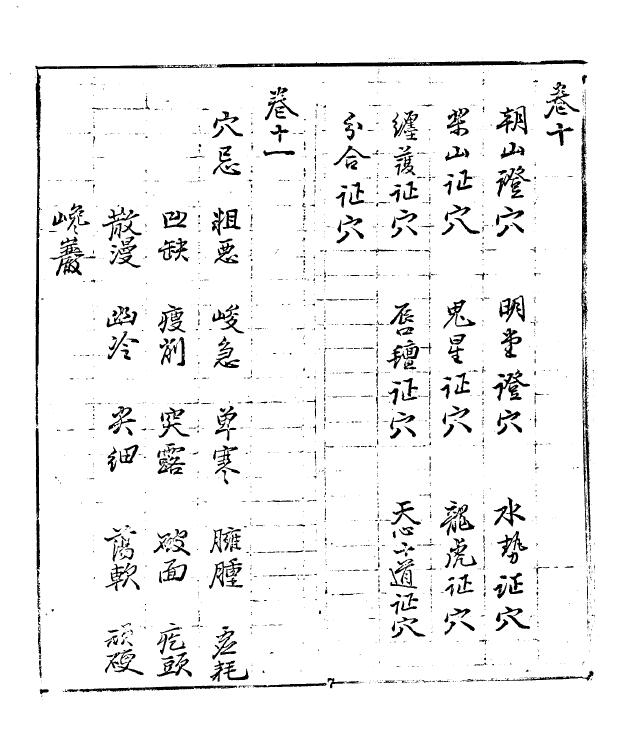 卷十
朝山證穴 明堂證穴 水势证穴
樂山证穴 鬼星证穴 龍虎证穴
纏護证穴 唇氊证穴 天心十道证穴
分合证穴
卷十一
穴忌 粗恶 峻急 单寒 臃腫 虚耗
凹缺 瘦削 突露 破面 疙頭
散漫 幽冷 尖细 蕩軟 頑硬
巉巖